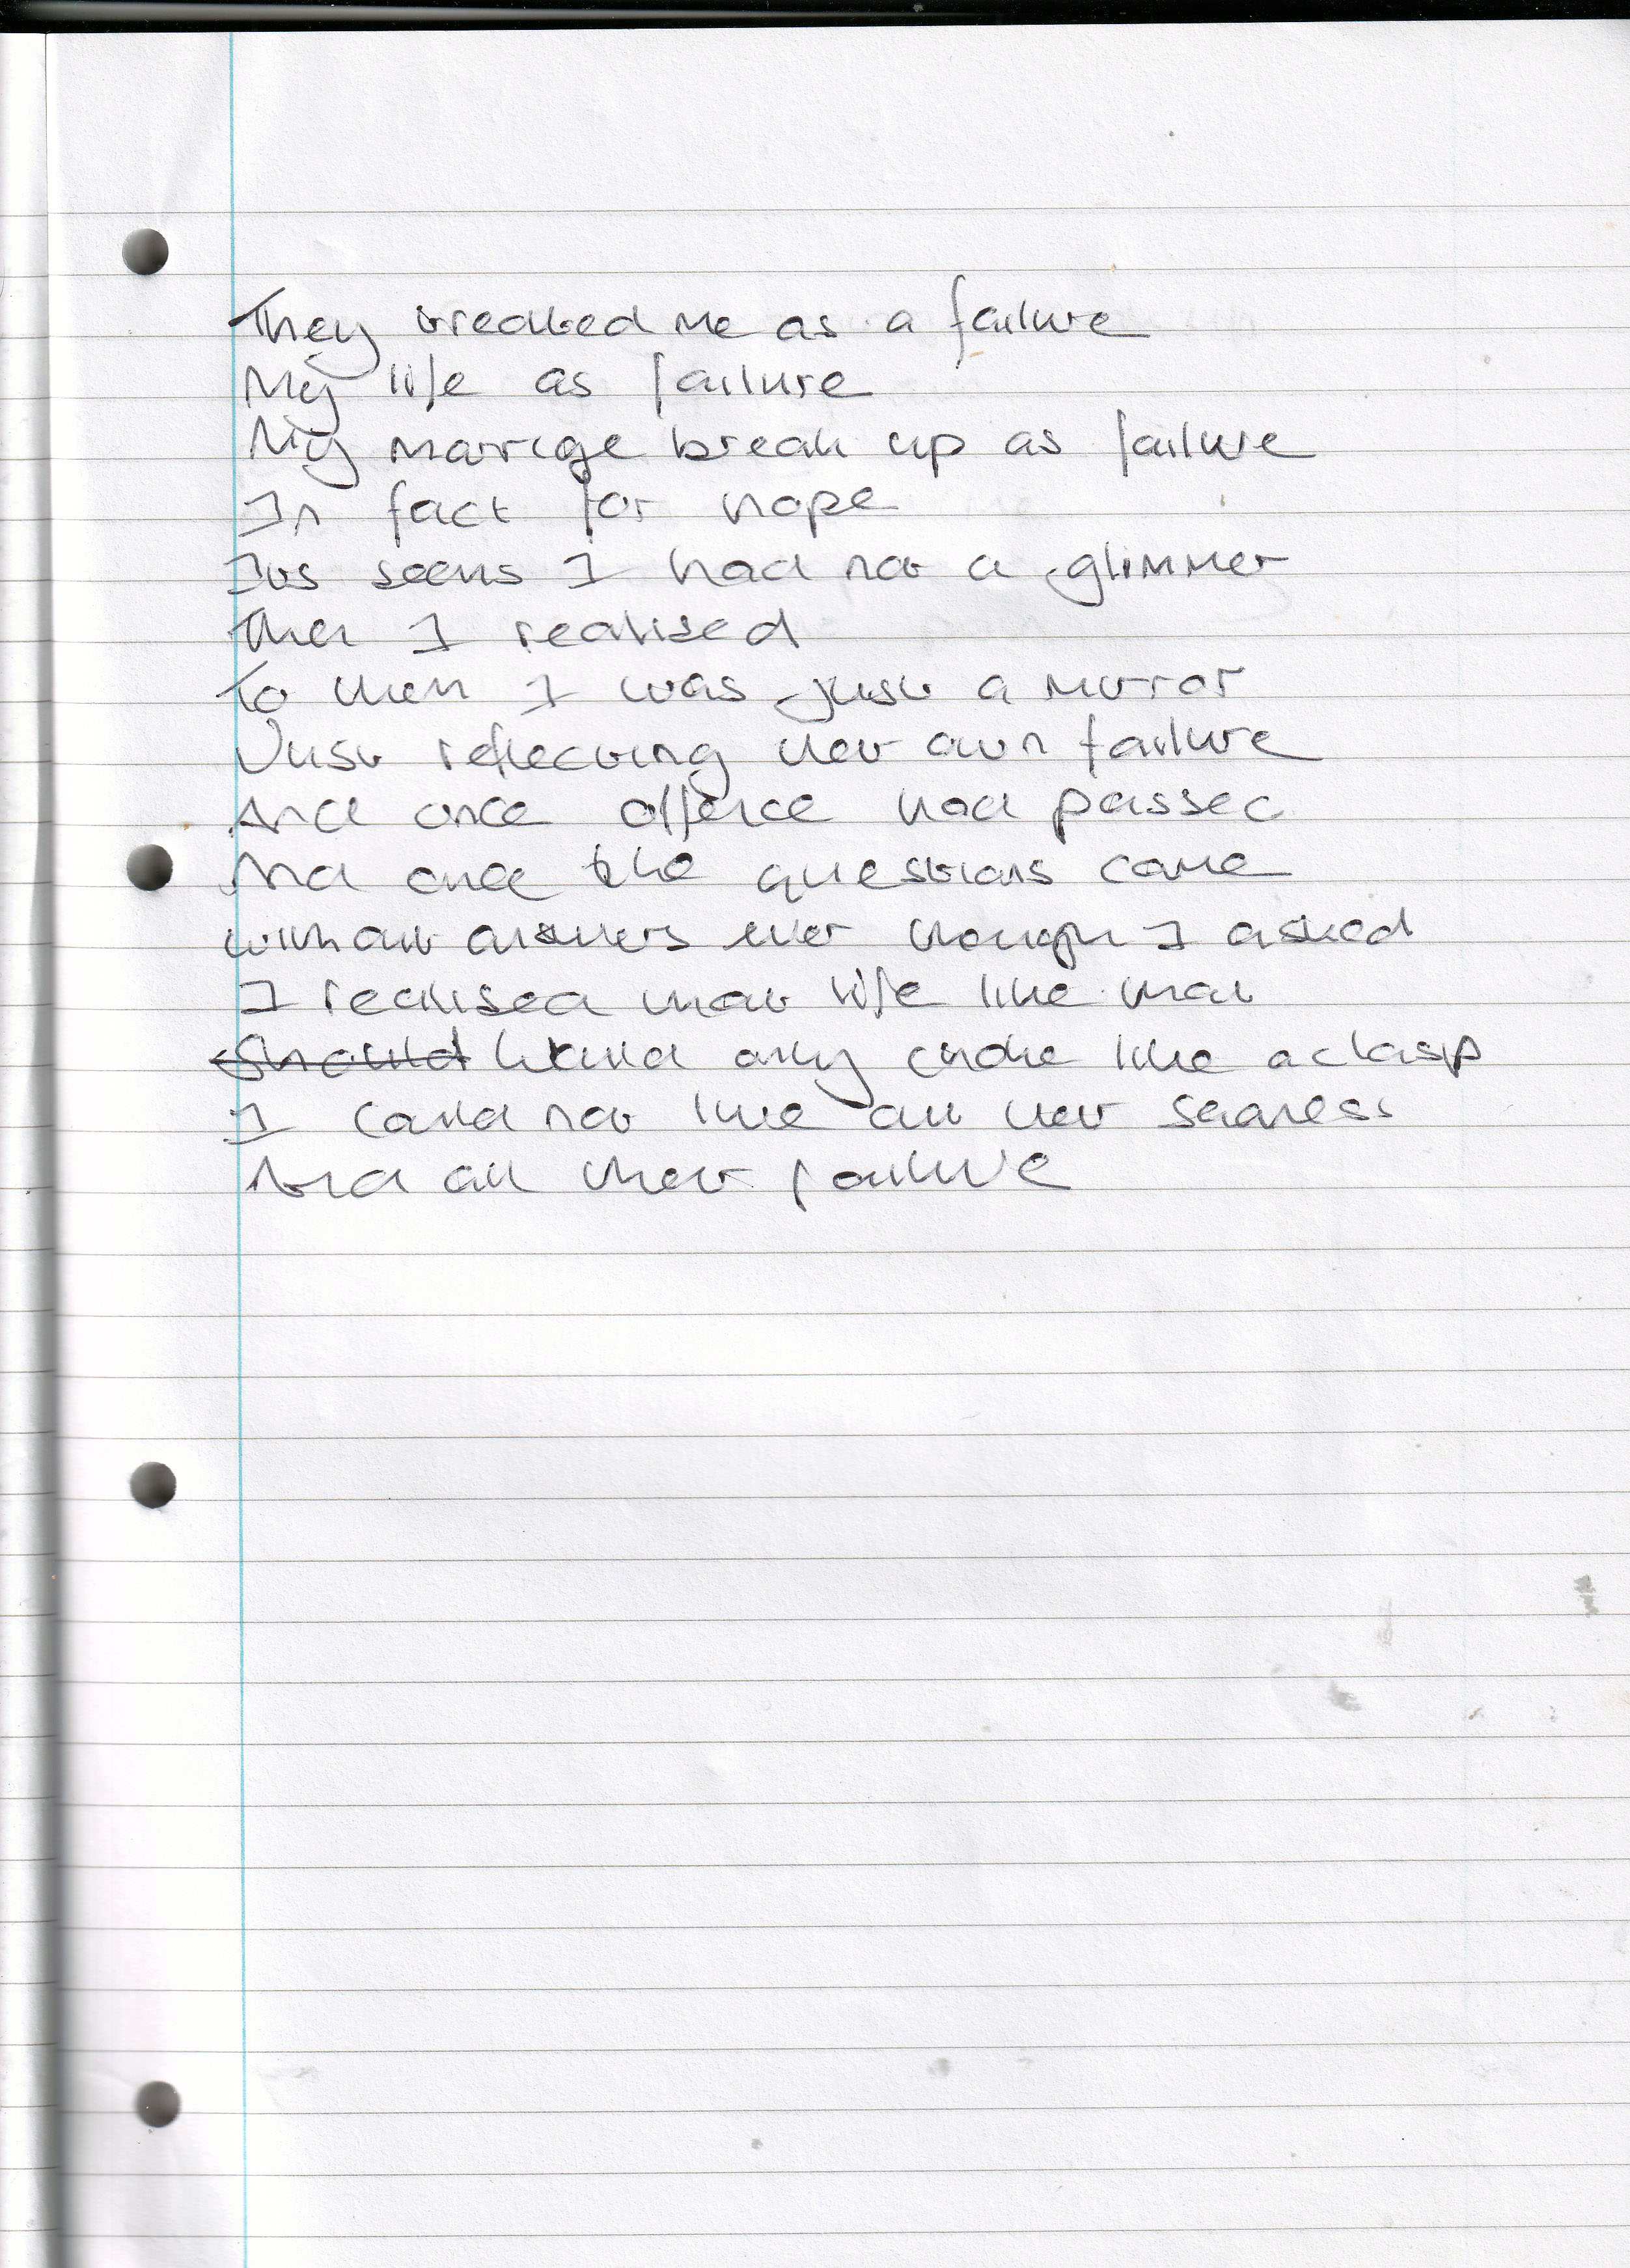 They treated me as a failure
My life as failure
My marrige break up as failure
In fact for hope
Its seems I had not a glimmer
Then I realised
To them I was just a mirror
Just reflecting their own failure
And once offence had passed
And once the questions came
without answers ever though I asked
I realised that life like that
Should Would only choke like a clasp
I could not live all their sadness
And all their failure